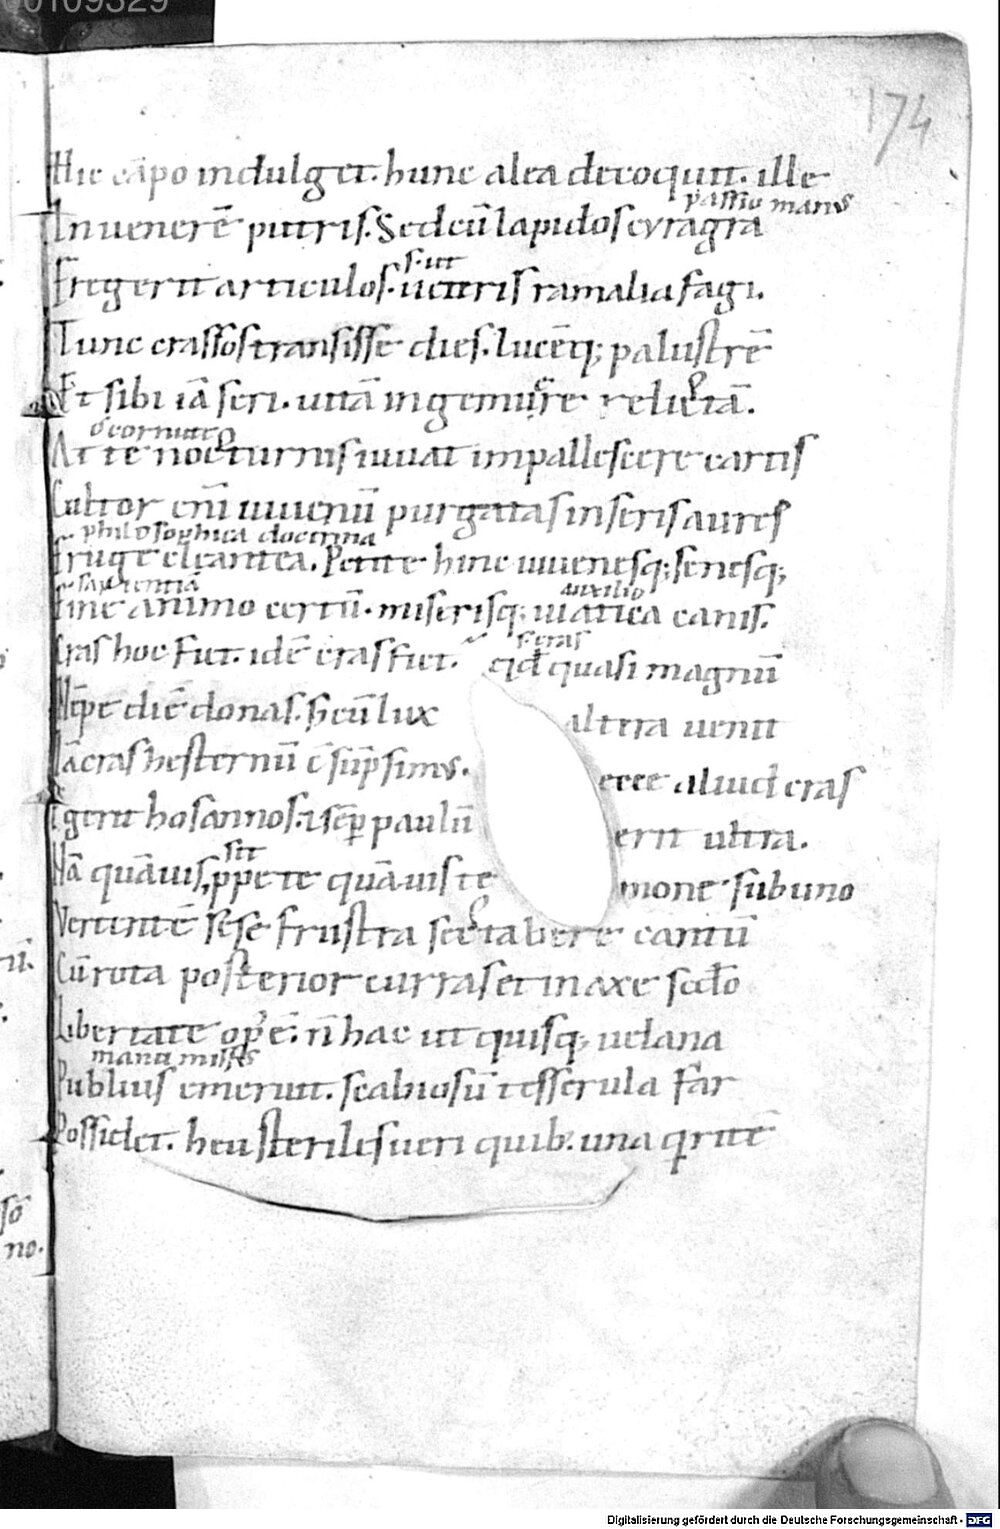 00109329
174
Hic cāpo indulget. hunc alea decoquit. ille
passio manus
In venerē putris. Sed cū lapidosa cyragra
s. ut
Fregerit articulos. ueteris ramalia fagi.
Tunc crassos transisse dies. lucēq; palustrē
Et sibi iā seri. uitā ingemuere relictā.
o cornute
At te nocturnis iuuat impallescere cartis
Cultor eni iuuenū purgatas inseris aures
philosophica doctrina
fruge cleantea. Petite hinc iuuenesq; senesq;
sapientiā auxilio
fine animo certū. miserisq; uiatica canis.
s. cras
Cras hoc fiet. idē cras fiet. qd quasi magnū
Nēpe diē donas. Sed cū lux altera uenit
Iā cras hesternū ē sūpsimus. ecce aliud cras
Egerit hos annos. & sēp paulū erit ultra.
sit
Nā quāuis ppe te quāuis te mone sub uno
Vertentē sese frustra sectabere cantū
Cū rota posterior curras et in axe scdo
Libertate op̄ ē. n̄ hac ut quisq; uelina
manu missus
Publius emeruit. scabiosū tesserula far
Possidet. heu steriles ueri quib. una qritē
sō
no.
Digitalisierung gefördert durch die Deutsche Forschungsgemeinschaft - DFG